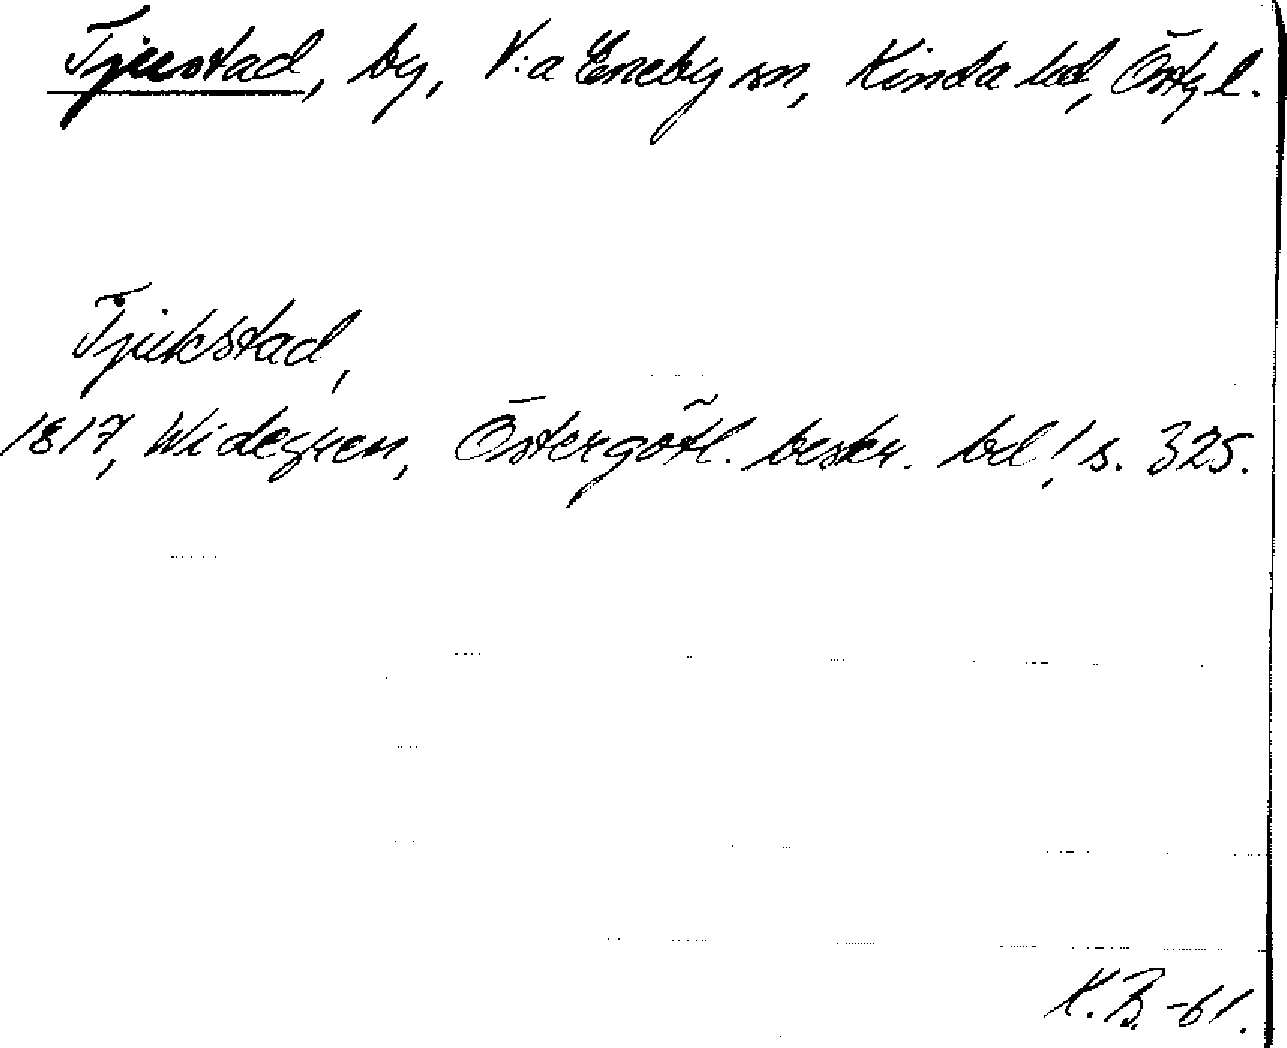 Tjustad, by, V:a Eneby sn, Kinda hd, Östg l.
Tjukstad,
1817, Widegren, Östergötl. beskr. bd 1, s. 325.
K.B. -61.